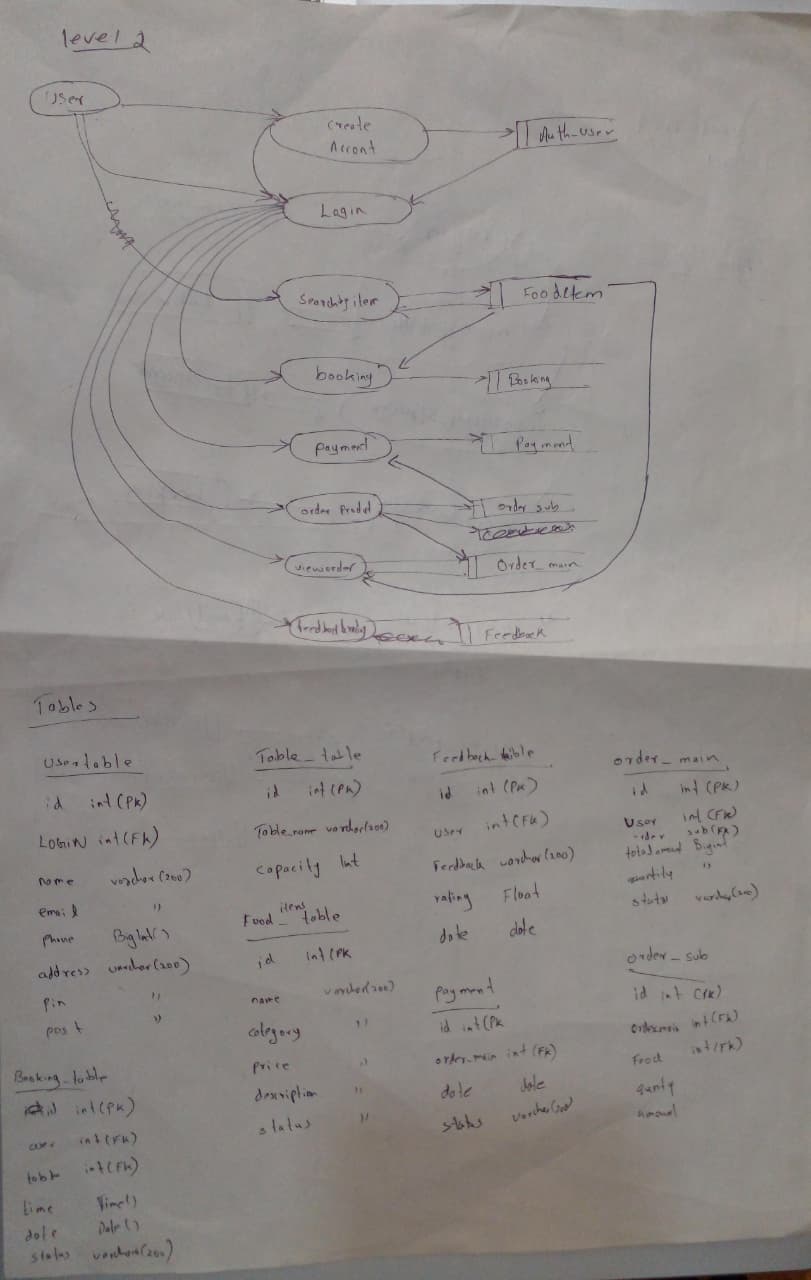 level 2
User
Create
Accont
Auth_user
Login
Searchbyitem
Booking
booking
payment
order
order_sub
vieworder
Order_main
Feedback
Tables
Usertable
id int(PK)
LOGIN int(FK)
name varchar(200)
email "
phone BigInt()
address varchar(200)
pin "
post "
Booking_table
id int(PK)
user int(FK)
int(FK)
time Time()
date Date()
status varchar(200)
Table_table
id int(PK)
Table_name varchar(200)
capacity Int
items
Food_table
id int(PK
name varchar(200)
category "
price "
description "
status "
Feedback_table
id int(PK)
user int(FK)
Feedback varchar(200)
rating Float
date date
payment
id int(PK
order_main int(FK)
date date
status varchar(200)
order_main
id int(PK)
User int(FK)
order sub(FK)
Bigint
quantity "
status varchar(200)
order_sub
id int (PK)
int(FK)
Food int(FK)